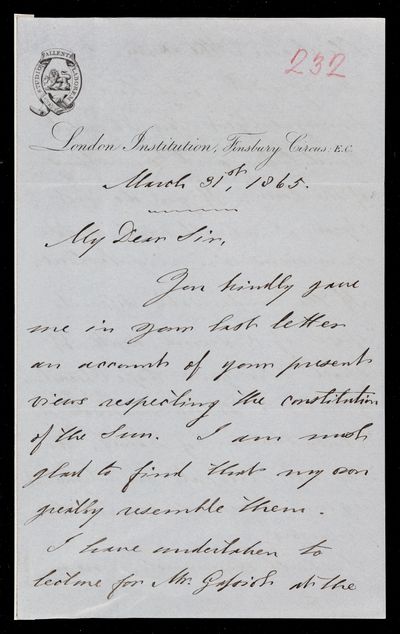 232
London Institution, Finsbury Circus: E.C.
March 31st, 1865.
My Dear Sir,
You kindly gave
me in your last letter
an account of your present
views respecting the constitution
of the Sun. I am most
glad to find that my own
greatly resemble them.
I have undertaken to
lecture for Mr. Gassiot at the